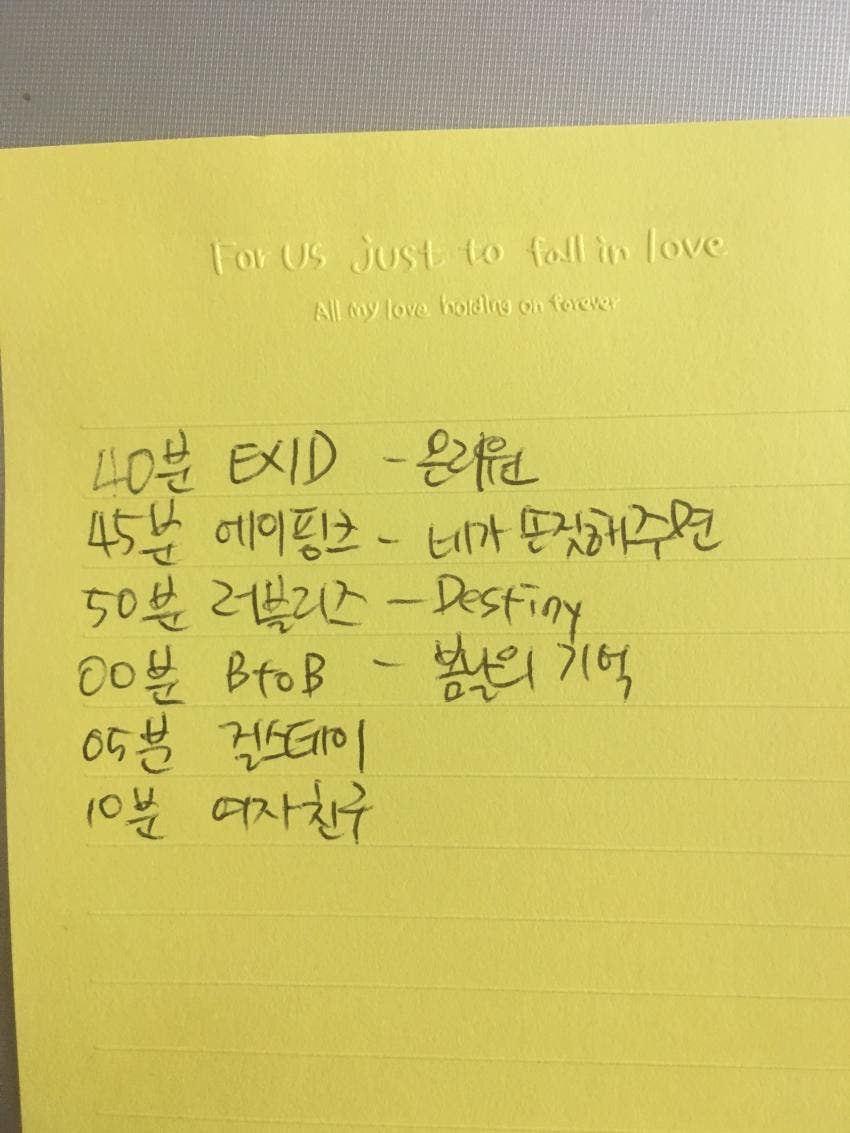 For us just to fall in love
All my love holding on forever
40분 EXID - 온리원
45분 에이핑크 - 네가 손짓해주면
50분 러블리즈 - Destiny
00분 BtoB - 봄날의 기억
05분 걸스데이
10분 여자친구